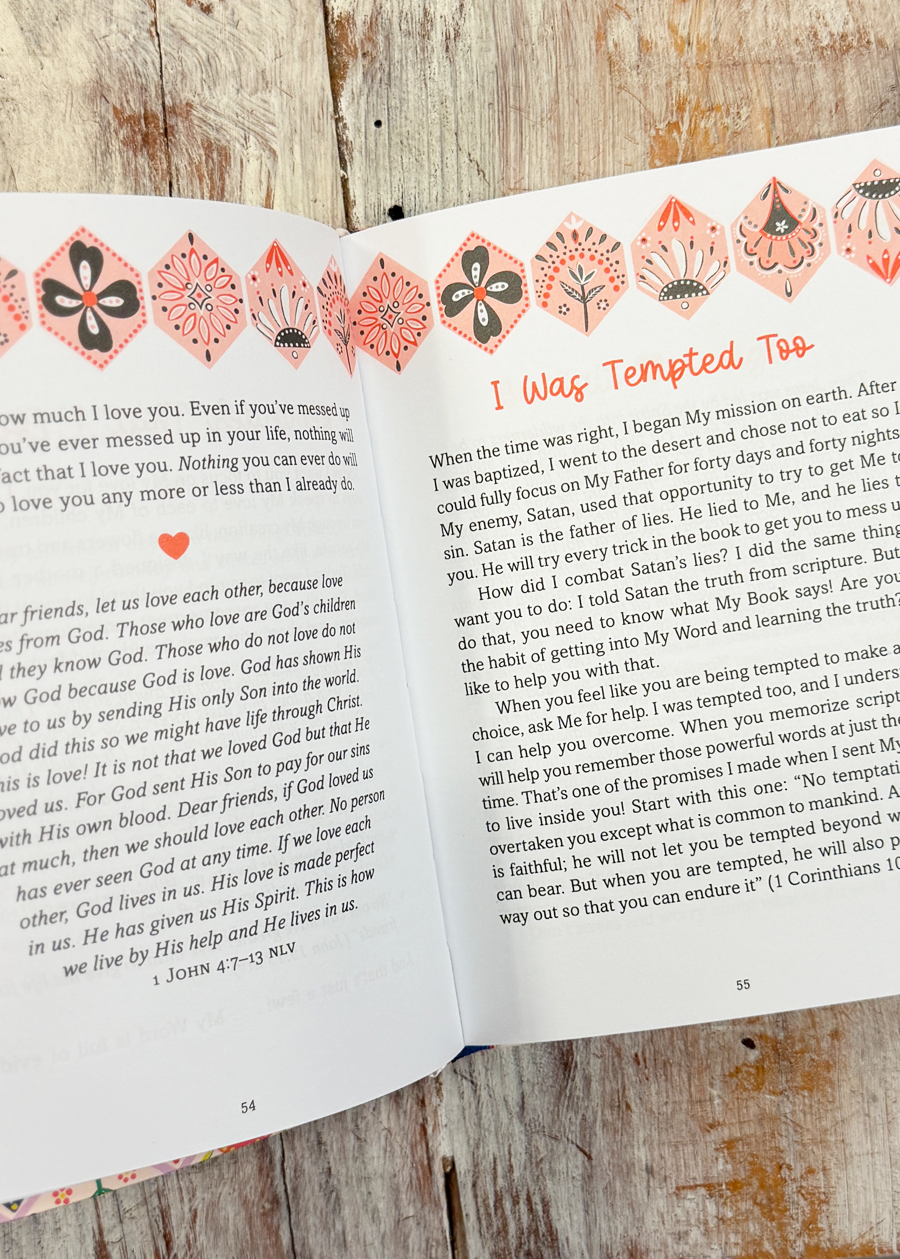 ow much I love you. Even if you've messed up
ou've ever messed up in your life, nothing will
fact that I love you. Nothing you can ever do will
o love you any more or less than I already do.
ar friends, let us love each other, because love
es from God. Those who love are God's children
they know God. Those who do not love do not
ow God because God is love. God has shown His
ve to us by sending His only Son into the world.
od did this so we might have life through Christ.
his is love! It is not that we loved God but that He
oved us. For God sent His Son to pay for our sins
with His own blood. Dear friends, if God loved us
at much, then we should love each other. No person
has ever seen God at any time. If we love each
other, God lives in us. His love is made perfect
in us. He has given us His Spirit. This is how
we live by His help and He lives in us.
1 John 4:7–13 NLV
54
I Was Tempted Too
When the time was right, I began My mission on earth. After
I was baptized, I went to the desert and chose not to eat so I
could fully focus on My Father for forty days and forty nights
My enemy, Satan, used that opportunity to try to get Me to
sin. Satan is the father of lies. He lied to Me, and he lies t
you. He will try every trick in the book to get you to mess u
How did I combat Satan's lies? I did the same thing
want you to do: I told Satan the truth from scripture. But
do that, you need to know what My Book says! Are you
the habit of getting into My Word and learning the truth?
like to help you with that.
When you feel like you are being tempted to make a
choice, ask Me for help. I was tempted too, and I unders
I can help you overcome. When you memorize script
will help you remember those powerful words at just the
time. That's one of the promises I made when I sent My
to live inside you! Start with this one: "No temptati
overtaken you except what is common to mankind. A
is faithful; he will not let you be tempted beyond w
can bear. But when you are tempted, he will also p
way out so that you can endure it" (1 Corinthians 10
55